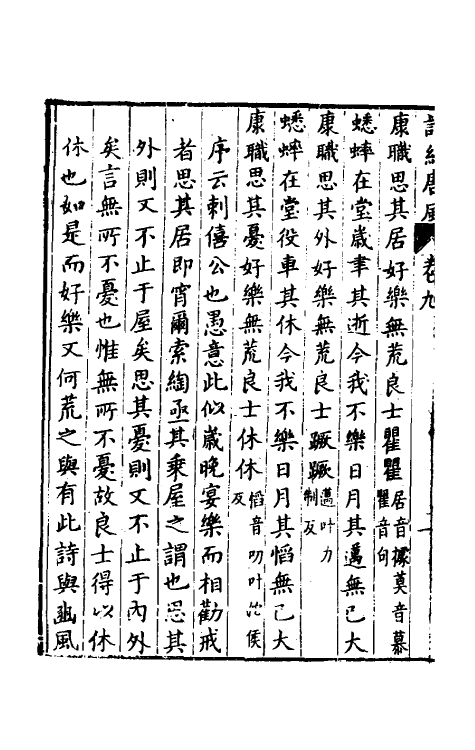 詩經唐風 卷九 一
康職思其居好樂無荒良士瞿瞿居音據莫音慕瞿音句
蟋蟀在堂歲聿其逝今我不樂日月其邁無已大
康職思其外好樂無荒良士蹶蹶邁叶力制反
蟋蟀在堂役車其休今我不樂日月其慆無已大
康職思其憂好樂無荒良士休休慆音叨叶佗侯反
序云刺僖公也愚意此似歲晚宴樂而相勸戒
者思其居即宵爾索綯亟其乘屋之謂也思其
外則又不止于屋矣思其憂則又不止于內外
矣言無所不憂也惟無所不憂故良士得以休
休也如是而好樂又何荒之與有此詩與豳風